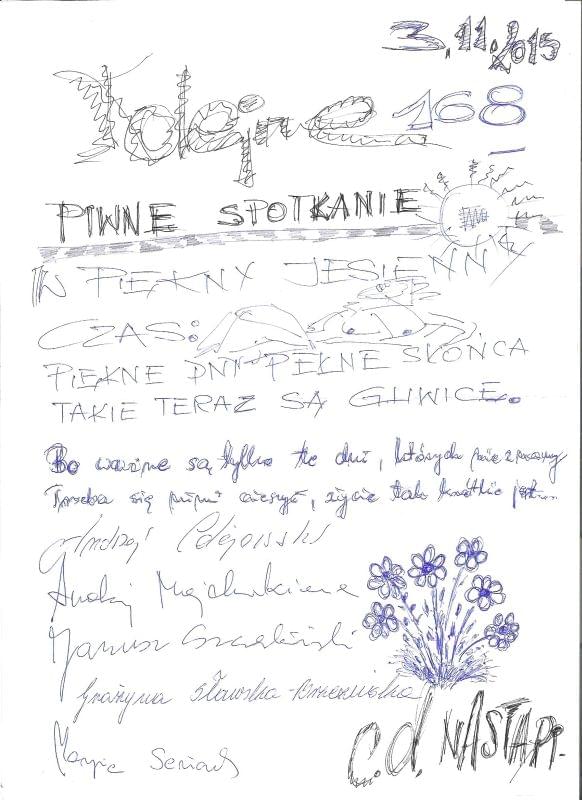 3.11.2015
Kolejne 168
PIWNE SPOTKANIE
W PIĘKNY JESIENNY
CZAS:
PIĘKNE DNI PEŁNE SŁOŃCA
TAKIE TERAZ SĄ GLIWICE.
Bo ważne są tylko te dni, których nie znamy
Trzeba się nimi cieszyć, życie tak krótkie jest...
Andrzej
Andrzej
Janusz
Grażyna Sławska-
C.d. NASTĄPI.